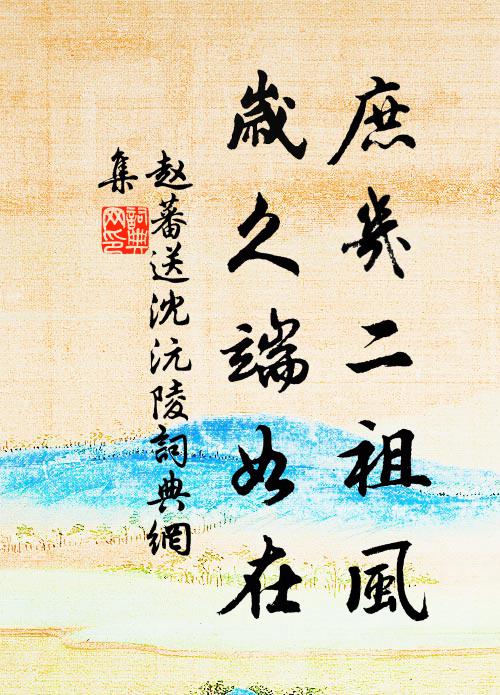 庶幾二祖風
歲久端如在
赵蕃送沈沅陵詞典網
集
詞典
网印